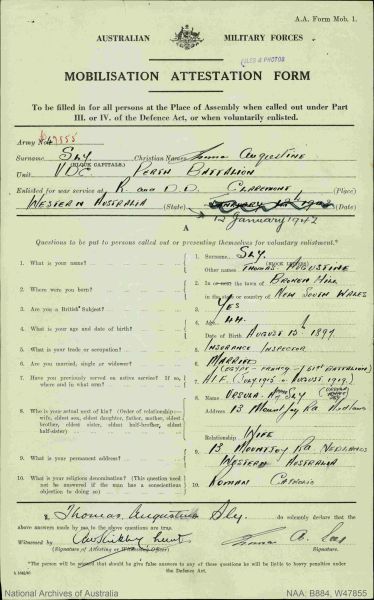 A.A. Form Mob. 1.
AUSTRALIAN MILITARY FORCES
FILES & PHOTOS
MOBILISATION ATTESTATION FORM
To be filled in for all persons at the Place of Assembly when called out under Part
III. or IV. of the Defence Act, or when voluntarily enlisted.
Army No. W47855
Surname SLY Christian Names Thomas Augustine
(BLOCK CAPITALS)
Unit VDC Perth Battalion
Enlisted for war service at R. and D.D. Claremont (Place)
Western Australia (State) (Date)
12 January 1942
A
Questions to be put to persons called out or presenting themselves for voluntary enlistment.
1. What is your name? 1. Surname SLY.
(BLOCK LETTERS)
Other names Thomas Augustine
2. Where were you born? 2. In or near the town of Broken Hill
in the state or country of New South Wales
3. Are you a British Subject? 3. Yes
4. What is your age and date of birth? 4. Age 44
Date of Birth August 15th 1897.
5. What is your trade or occupation? 5. Insurance Inspector
6. Are you married, single or widower? 6. Married
7. Have you previously served on active service? If so, where and in what arm? 7. (Egypt - France - 51st Battalion)
A.I.F. July 1915 - August 1919.
8. Who is your actual next of kin? (Order of relationship—
wife, eldest son, eldest daughter, father, mother, eldest
brother, eldest sister, eldest half-brother, eldest
half-sister) 8. Name Ursula Sly
Address 13 Mountjoy Rd Nedlands
Relationship Wife
9. What is your permanent address? 9. 13 Mountjoy Rd. Nedlands
Western Australia
10. What is your religious denomination? (This question need
not be answered if the man has a conscientious
objection to doing so) 10. Roman Catholic
I, Thomas Augustine Sly do solemnly declare that the
above answers made by me to the above questions are true.
Witnessed by
(Signature of Attesting or Witnessing Officer) (Signature)
*The person will be warned that should he give false answers to any of these questions he will be liable to heavy penalties under
the Defence Act.
National Archives of Australia NAA: B884, W47855